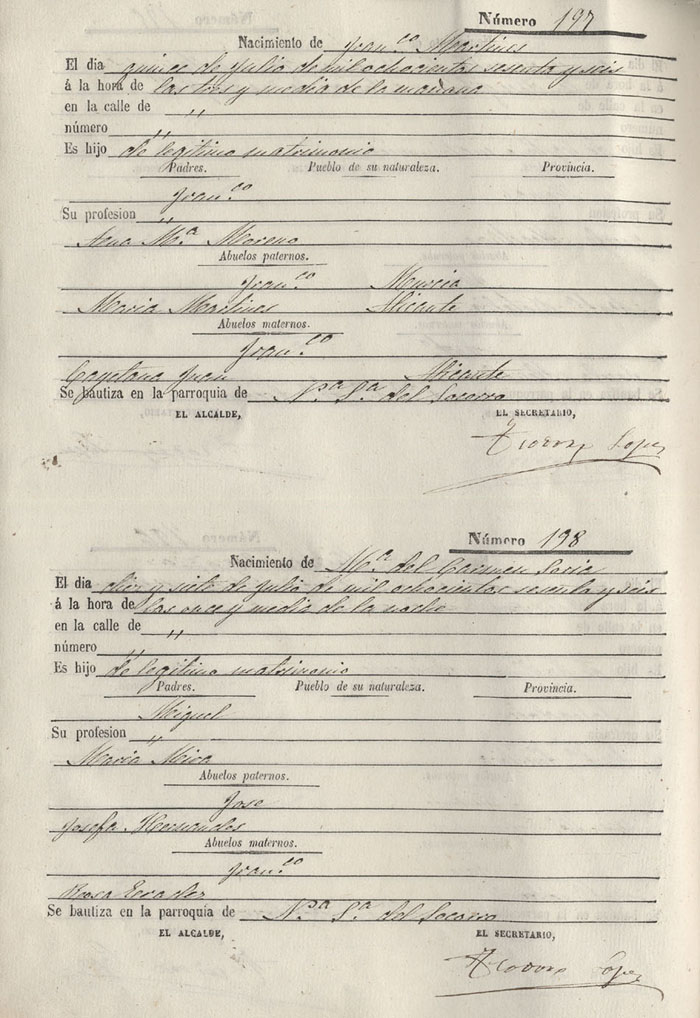 Número 197
Nacimiento de Fran.co Martines
El dia quince de Julio de mil ochocientos sesenta y seis
á la hora de las tres y media de la mañana
en la calle de "
número "
Es hijo de legitimo matrimonio
Padres. Pueblo de su naturaleza. Provincia.
Fran.co
Su profesion "
Ana M.a Moreno
Abuelos paternos.
Fran.co Murcia
Maria Martines Alicante
Abuelos maternos.
Fran.co
Cayetana Juan Alicante
Se bautiza en la parroquia de N.a S.a del Socorro
EL ALCALDE, EL SECRETARIO,
Teodoro Lopez
Número 198
Nacimiento de M.a del Carmen Soria
El dia diez y siete de Julio de mil ochocientos sesenta y seis
á la hora de las once y media de la noche
en la calle de "
número "
Es hijo de legitimo matrimonio
Padres. Pueblo de su naturaleza. Provincia.
Miguel
Su profesion "
Maria Mira
Abuelos paternos.
Jose
Josefa Hernandes
Abuelos maternos.
Fran.co
Rosa
Se bautiza en la parroquia de N.a S.a del Socorro
EL ALCALDE, EL SECRETARIO,
Teodoro López